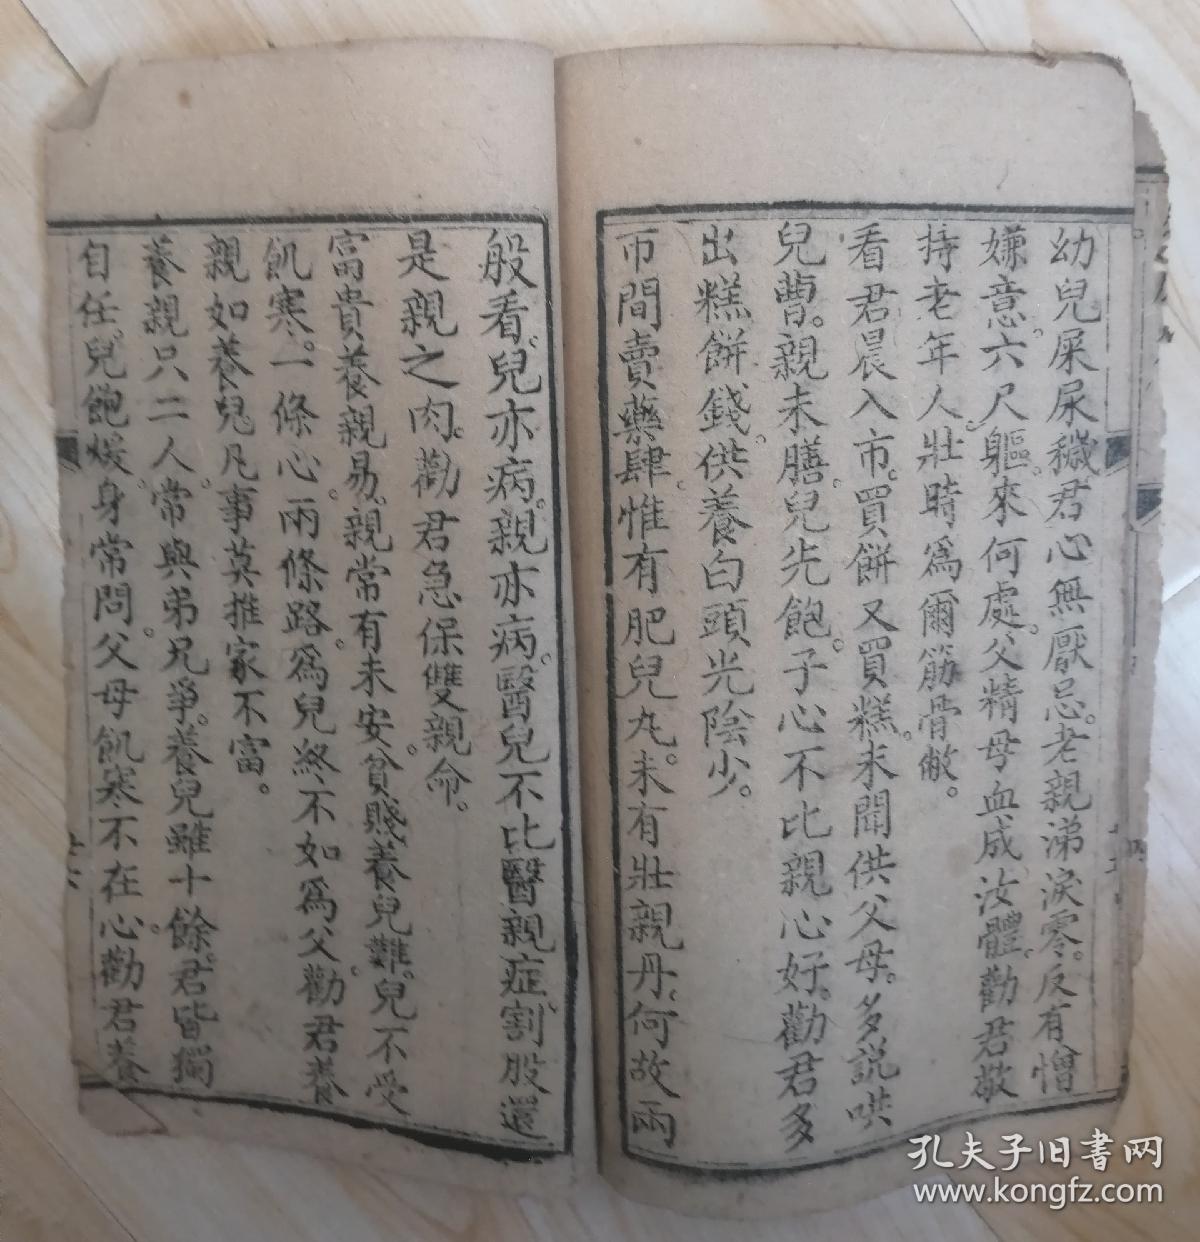 幼兒屎尿穢君心無厭忌。老親涕淚零。反有憎
嫌意。六尺軀。來何處。父精母血成汝體。勸君敬
持老年人。壯時爲爾筋骨敝。
看君晨入市。買餅又買糕。未聞供父母。多說哄
兒曹。親未膳。兒先飽。子心不比親心好。勸君多
出糕餅錢。供養白頭光陰少。
市間賣藥肆。惟有肥兒丸。未有壯親丹。何故兩
般看。兒亦病。親亦病。醫兒不比醫親症。割股還
是親之肉。勸君急保雙親命。
富貴養親易。親常有未安。貧賤養兒難。兒不受
飢寒。一條心。兩條路。爲兒終不如爲父。勸君養
親如養兒。凡事莫推家不富。
養親只二人。常與弟兄爭。養兒雖十餘。君皆獨
自任。兒飽煖。身常問。父母飢寒不在心。勸君養
孔夫子旧書网
www.kongfz.com